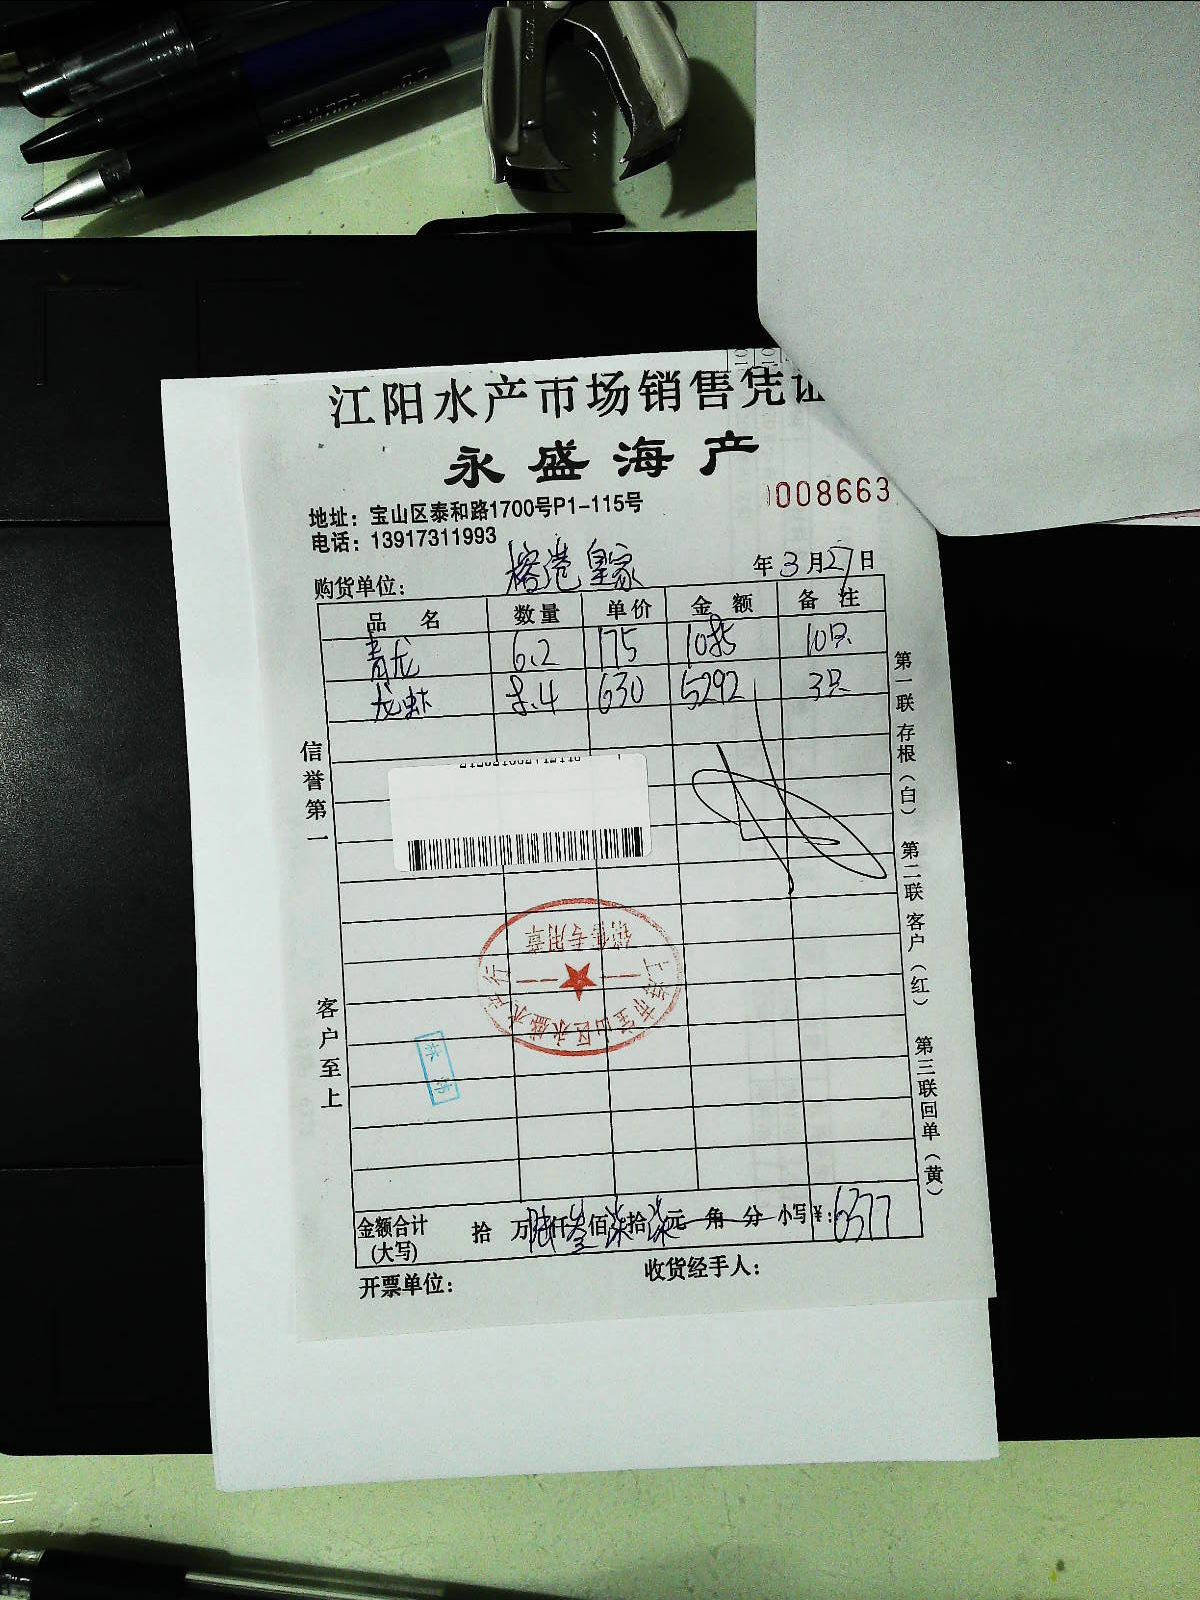 江阳水产市场销售凭证
永盛海产
地址：宝山区泰和路1700号P1-115号
008663
电话：13917311993
购货单位：榕港皇家 年3月27日
品名 数量 单价 金额 备注
青龙 6.2 175 1085 10只
龙虾 8.4 630 5292 3只
信誉第一
客户至上
第一联存根（白） 第二联客户（红） 第三联回单（黄）
销售专用章
上海市宝山区永盛水产行
金额合计(大写) 拾万陆仟叁佰柒拾柒元角分 小写¥:6377
开票单位： 收货经手人：